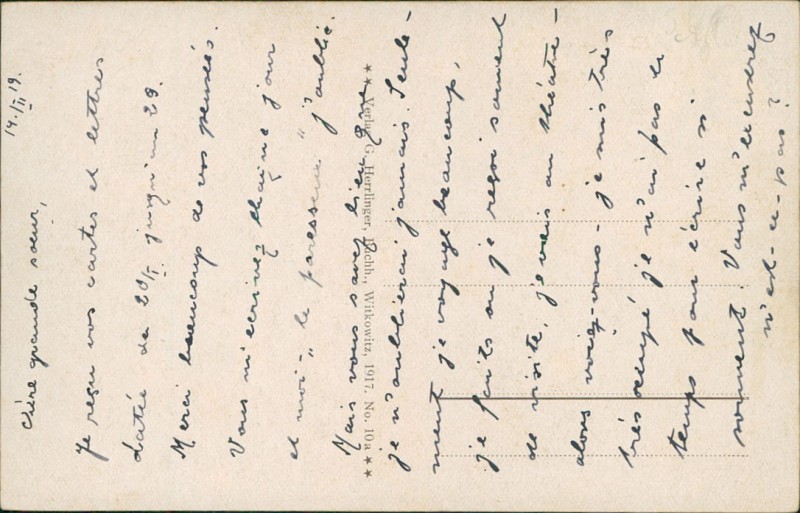 14./II 19.
Chère grande sœur,
Je reçu vos cartes et lettres
datée du 20/I. jusqu'au 29.
Merci beaucoup de vos pensées.
Vous m'écrivez chaque jour
et moi - „le paresseux" j'oublie.
Mais vous savez bien que
je n'oublierai jamais. Seule-
ment je voyage beaucoup,
je fais ou je reçoi souvent
de visite, je vais au théâtre -
alors voiez-vous - je suis très
très occupé je n'ai pas le
temps pour écrire si
souvent. Vous m'excuserez
n'est-ce-pas?
★★ Verlag G. Herrlinger, Buchh., Witkowitz, 1917. No. 10a ★★